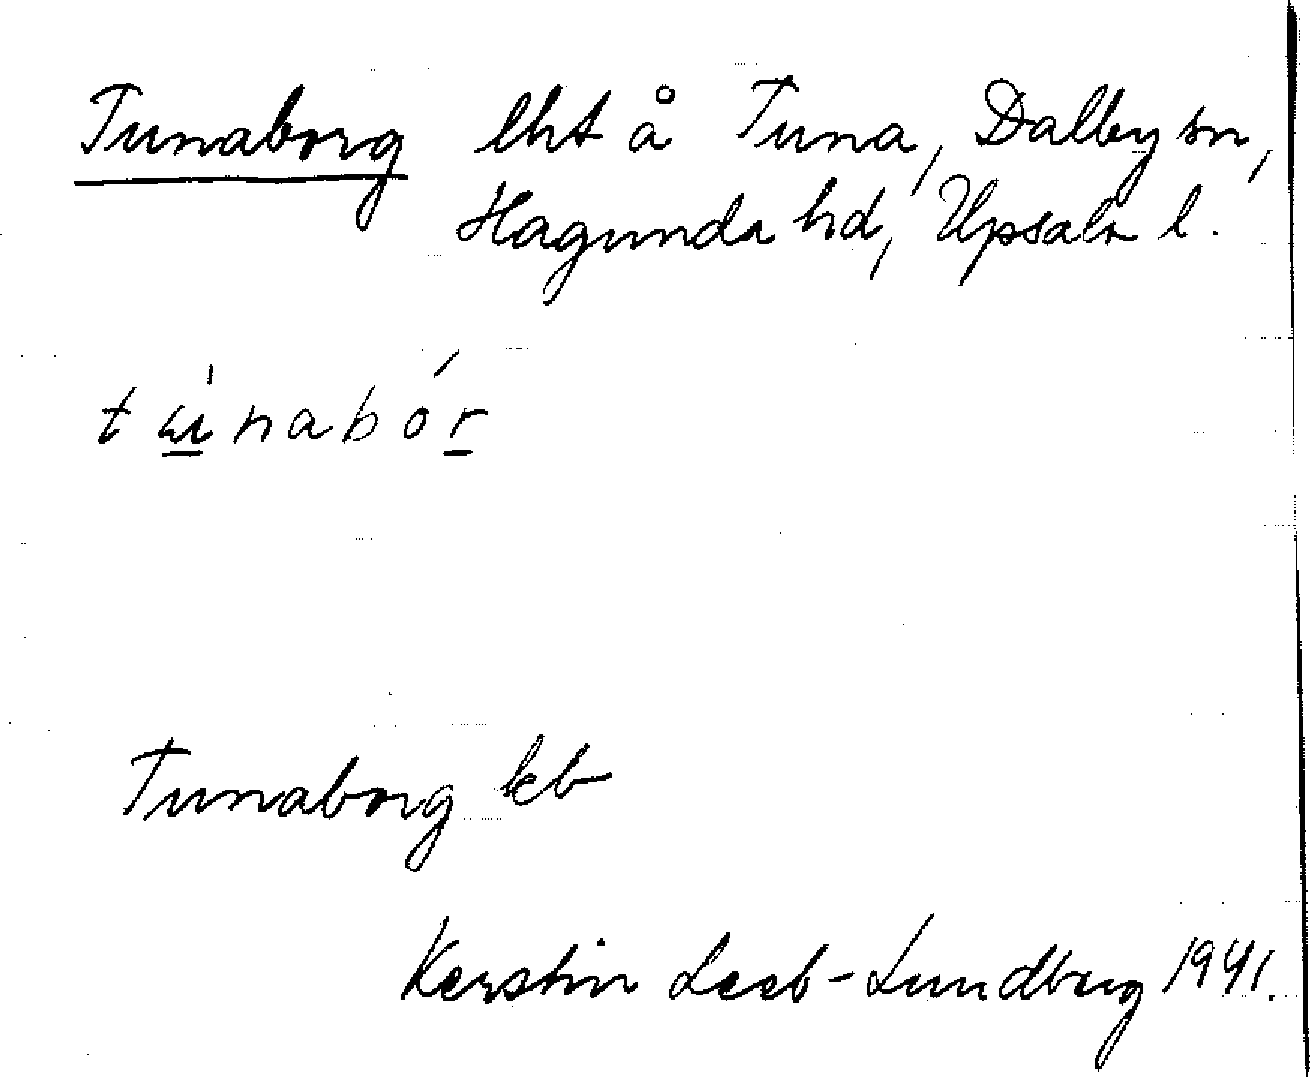 Tunaborg lht å Tuna, Dalby sn,
Hagunda hd, Upsala l.
Tunaborg kb
Kerstin Leeb-Lundberg 1941.